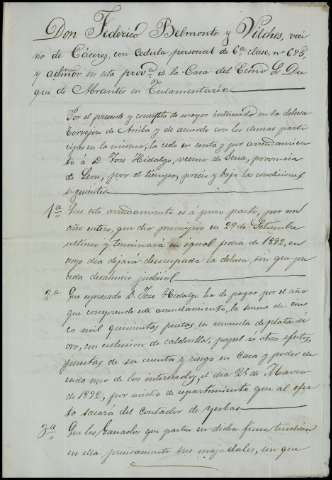 Don Federico Belmonte y Vilches, veci
no de Cáceres, con Cedula personal de 6ª clase nº 698
y admor en esta provª de la Casa del Ecmo S. Du
que de Abrantes en Testamentaria
Por el presente y como de mayor interesado en la dehesa
de Anita y de acuerdo con los demas parti
cipes en la misma, la cede en renta y por arrendamien
to á D. José Hidalgo, vecino de provincia
de Leon, por el tiempo, precio y bajo las condiciones
siguientes
1ª Que este arrendamiento es á puro pasto, por un
año entero, que dió principio en 29 de Setiembre
ultimo y terminará en igual fecha de 1892, en
cuyo dia dejará desocupada la dehesa sin que pre
ceda desahucio judicial
2ª Que expresado D. José Hidalgo ha de pagar por el año
que comprende este arrendamiento, la suma de cin
co mil quinientas pesetas en moneda de plata ú
oro, con exclusion de calderilla, papel ú otros efectos,
puestas de su cuenta y riesgo en Casa y poder de
cada uno de los interesados, el dia 25 de Marzo
de 1892, por medio de repartimiento que al efec
to sacará del Contador de yerbas
3ª Que los Ganados que pasten en dicha finca tendrán
en ella precisamente sus majadales, sin que